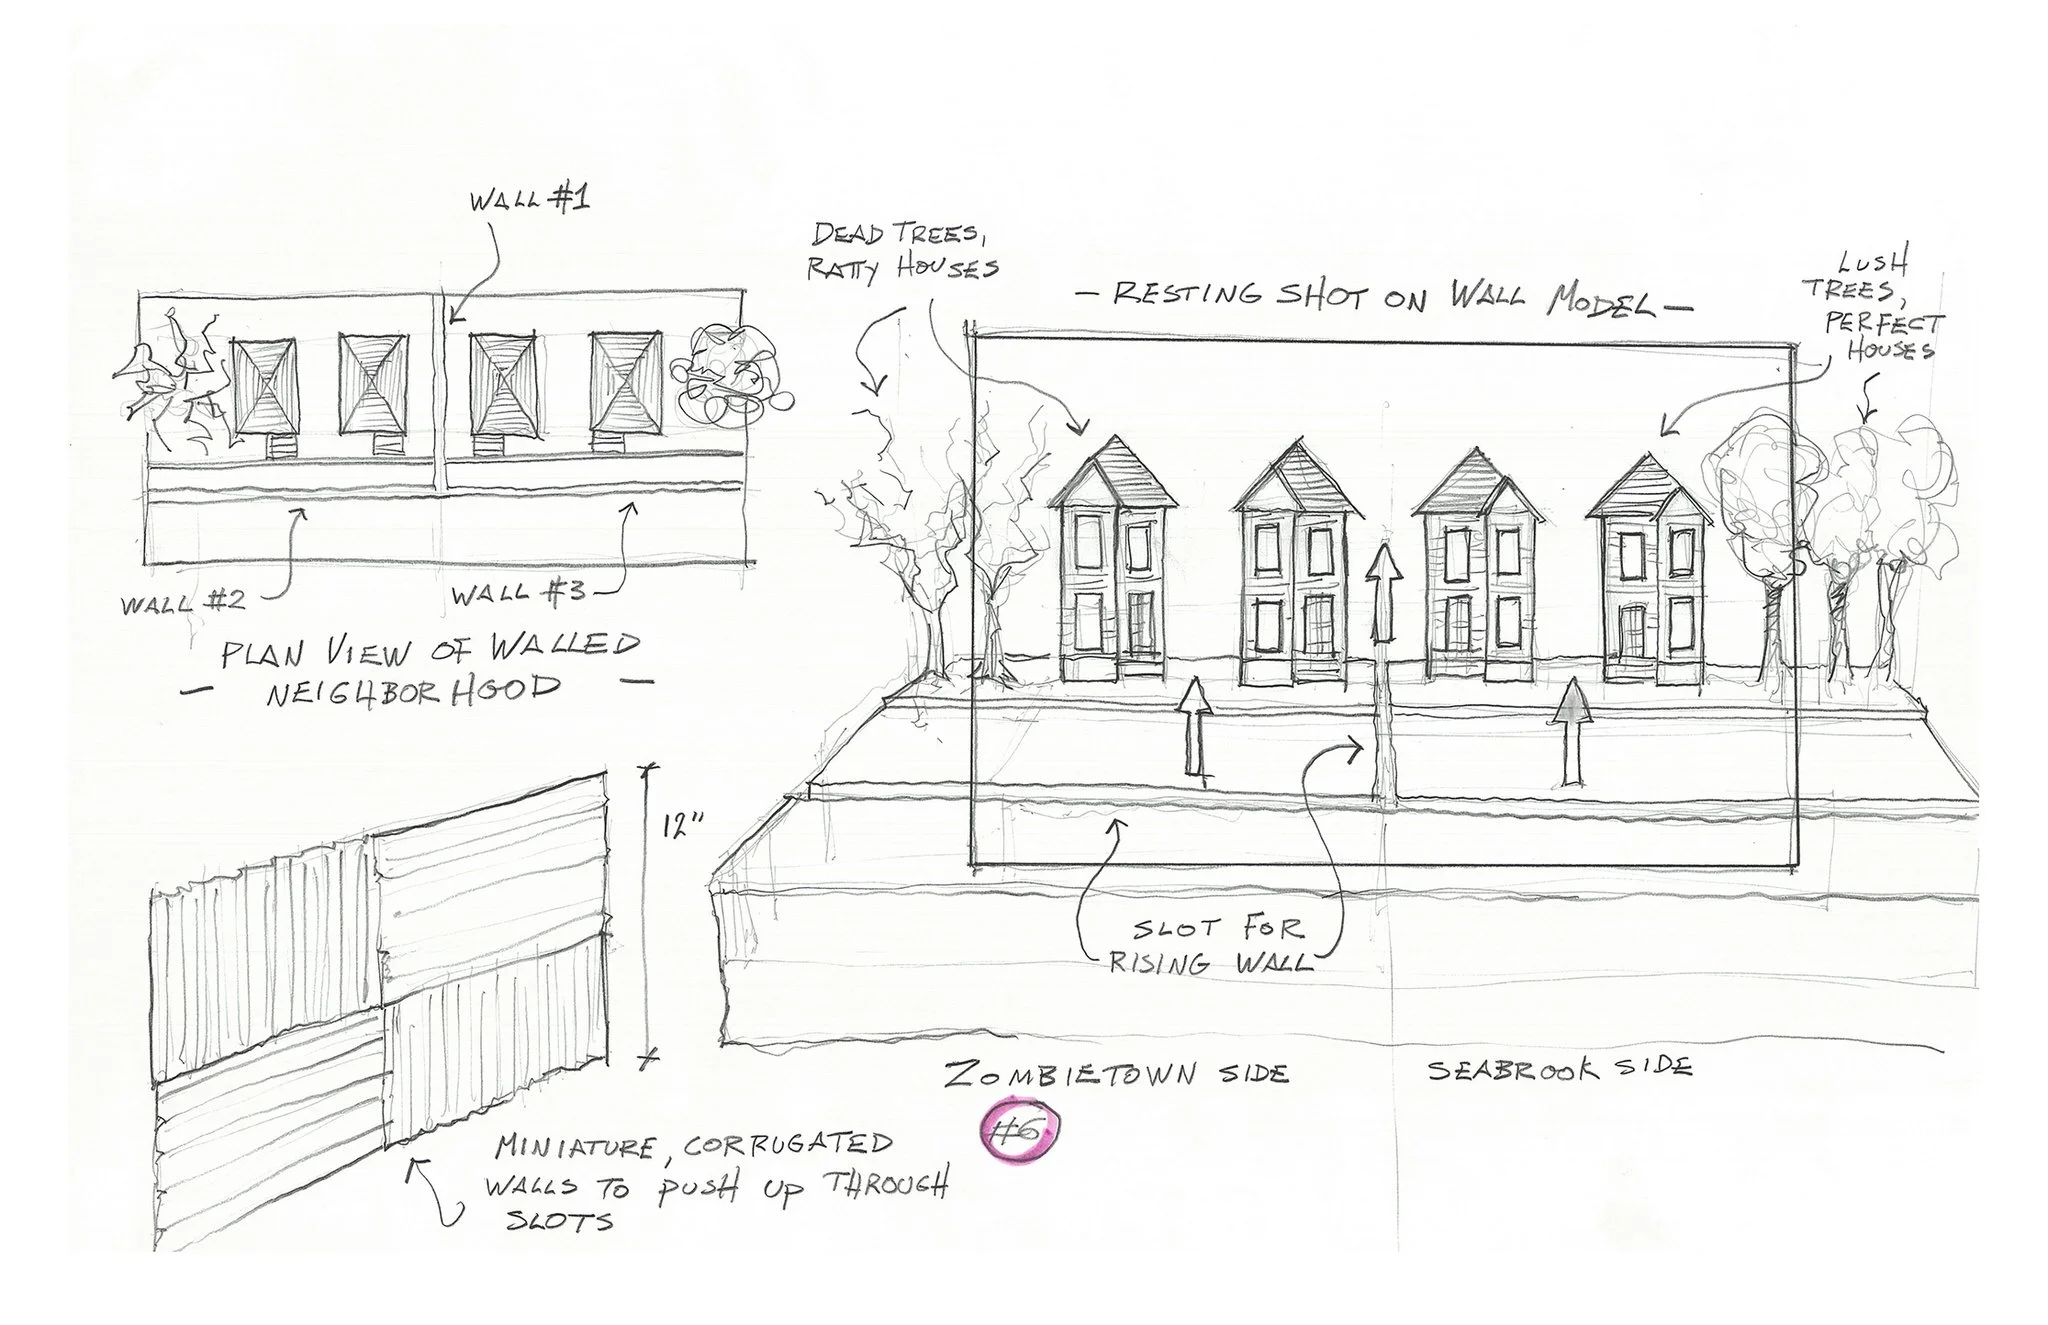 WALL #1
WALL #2
WALL #3
PLAN VIEW OF WALLED
— NEIGHBORHOOD —
12"
MINIATURE, CORRUGATED
WALLS TO PUSH UP THROUGH
SLOTS
DEAD TREES,
RATTY HOUSES
— RESTING SHOT ON WALL MODEL —
LUSH
TREES,
PERFECT
HOUSES
SLOT FOR
RISING WALL
ZOMBIETOWN SIDE
SEABROOK SIDE
#6